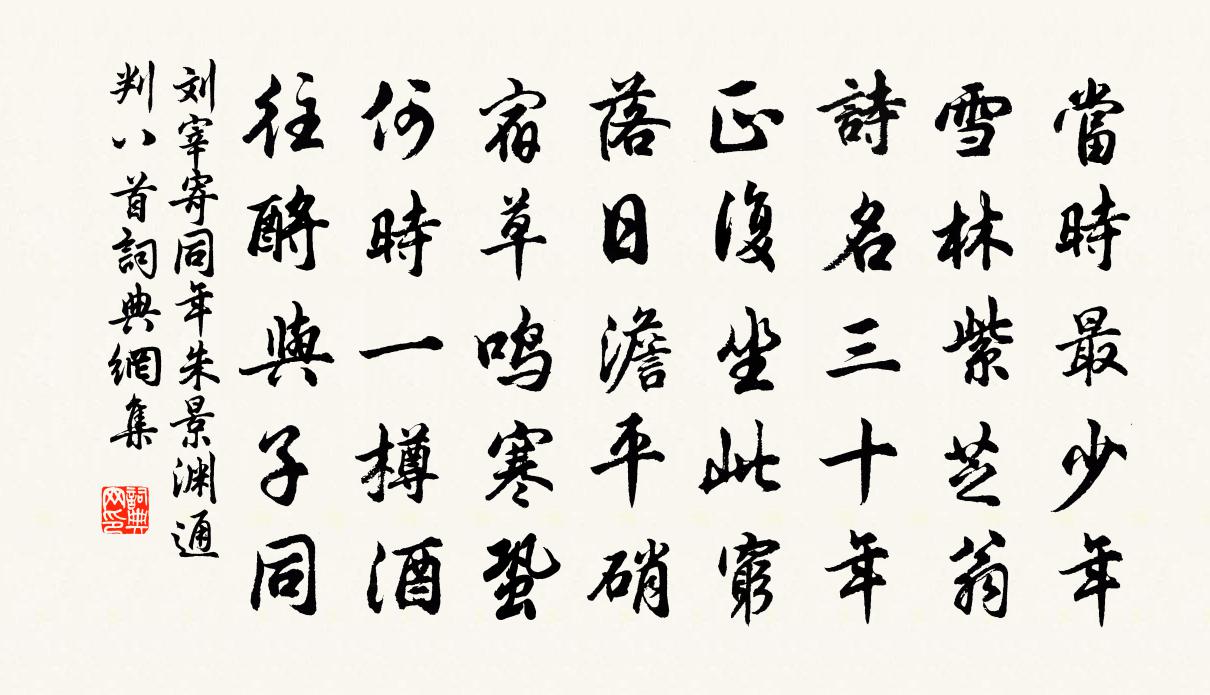 當時最少年
雪林紫芝翁
詩名三十年
正復坐此窮
落日澹平硝
宿草鳴寒蛩
何時一樽酒
往酹與子同
刘宰寄同年朱景渊通
判八首詞典網集
詞典
网印